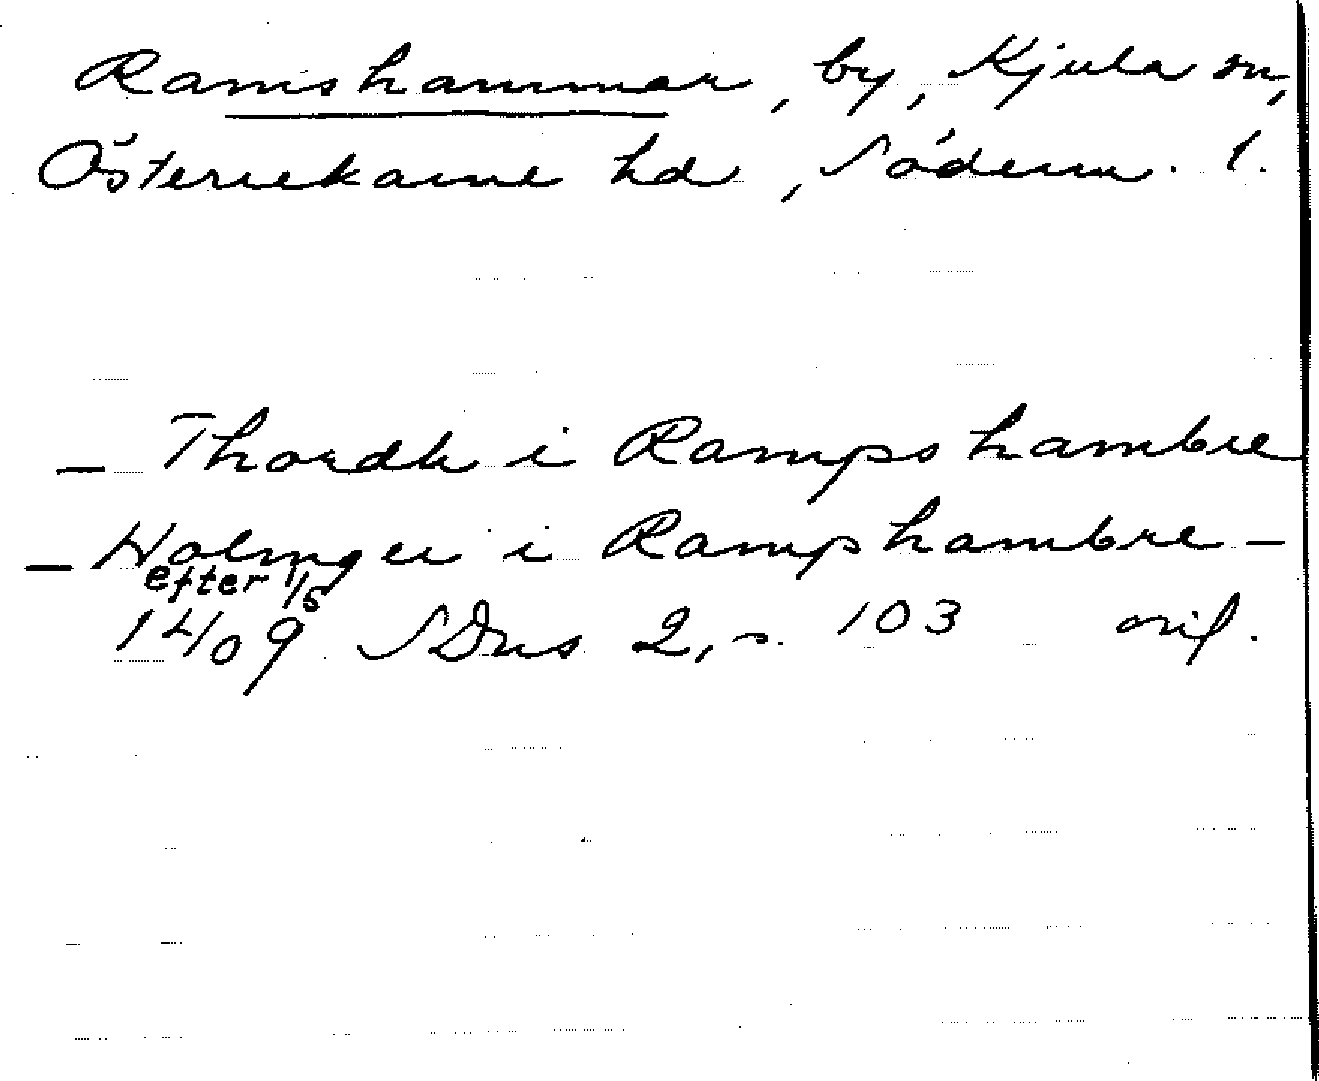 Ramshammar, by, Kjula sn,
Österrekarne hd, Söderm. l.
— Thordh i Rampshambre
— Holmger i Ramphambre —
efter 1/5
1409 SDns 2, s. 103 orig.